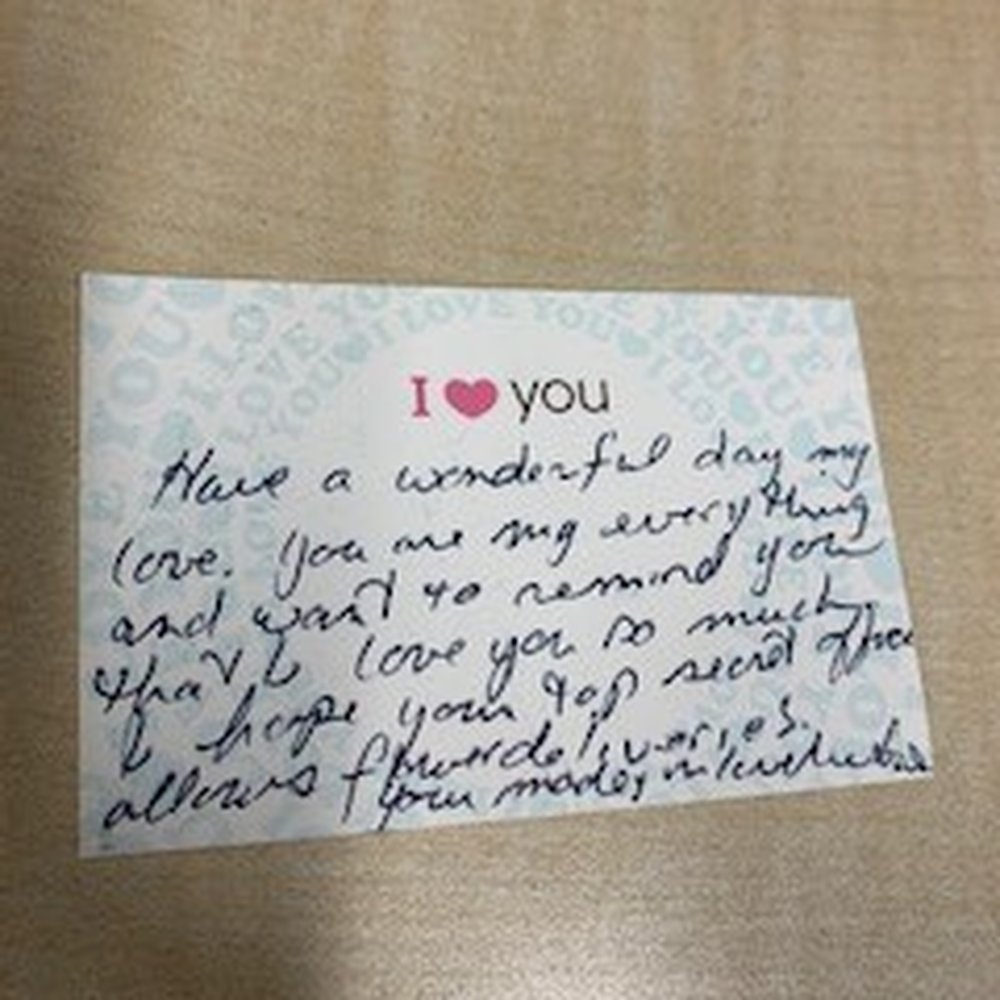 I ♥ you
Have a wonderful day my
love. You are my everything
and want to remind you
that I love you so much,
I hope your top secret office
allows flower deliveries.
your